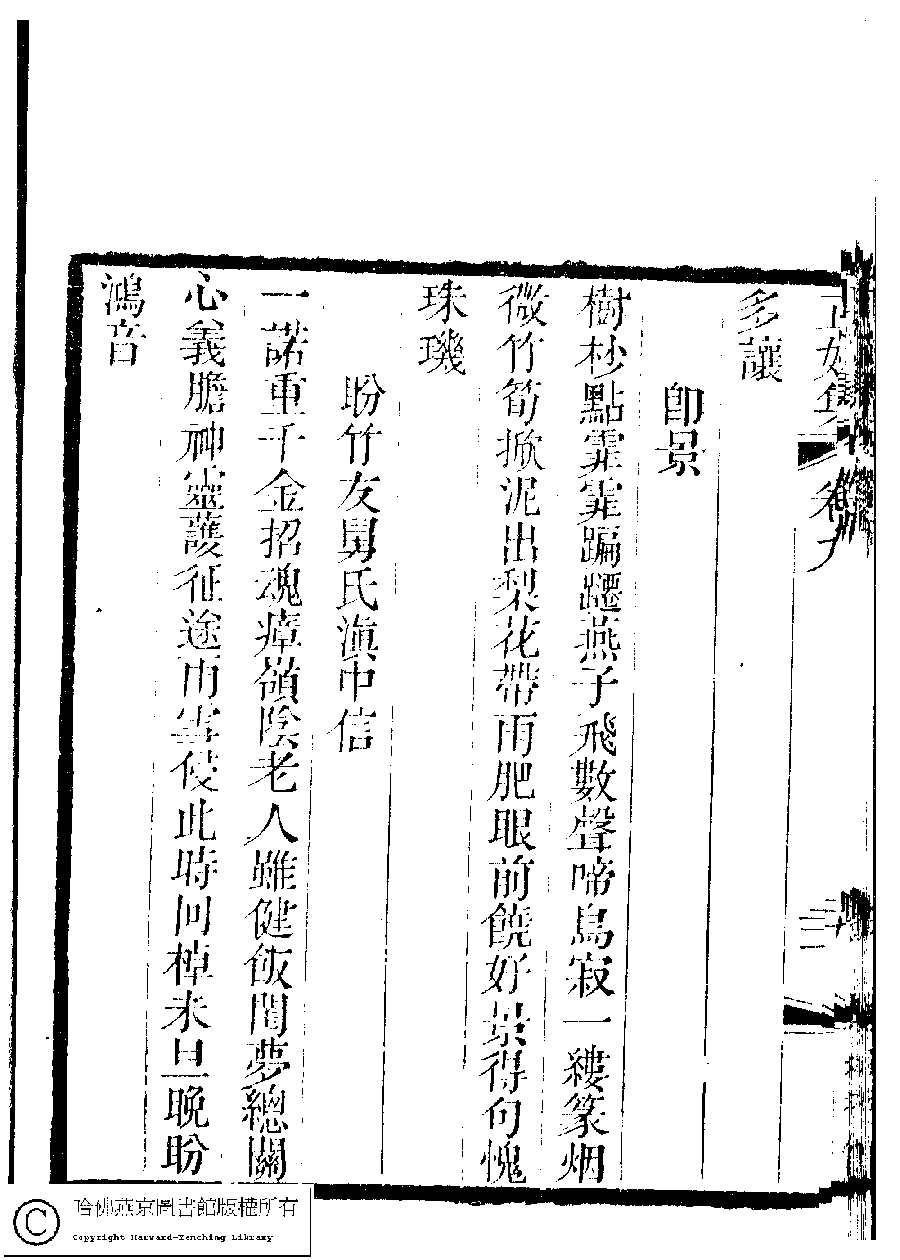 多讓
卽景
樹杪點霏霏蹁躚燕子飛數聲啼鳥寂一縷篆烟
微竹筍掀泥出梨花帶雨肥眼前饒好景得句愧
珠璣
盼竹友舅氏滇中信
一諾重千金招魂瘴嶺陰老人雖健飯閨夢總關
心義膽神靈護征途雨雪侵此時回棹未旦晚盼
鴻音
哈佛燕京圖書館版權所有
Copyright Harvard-Yenching Library